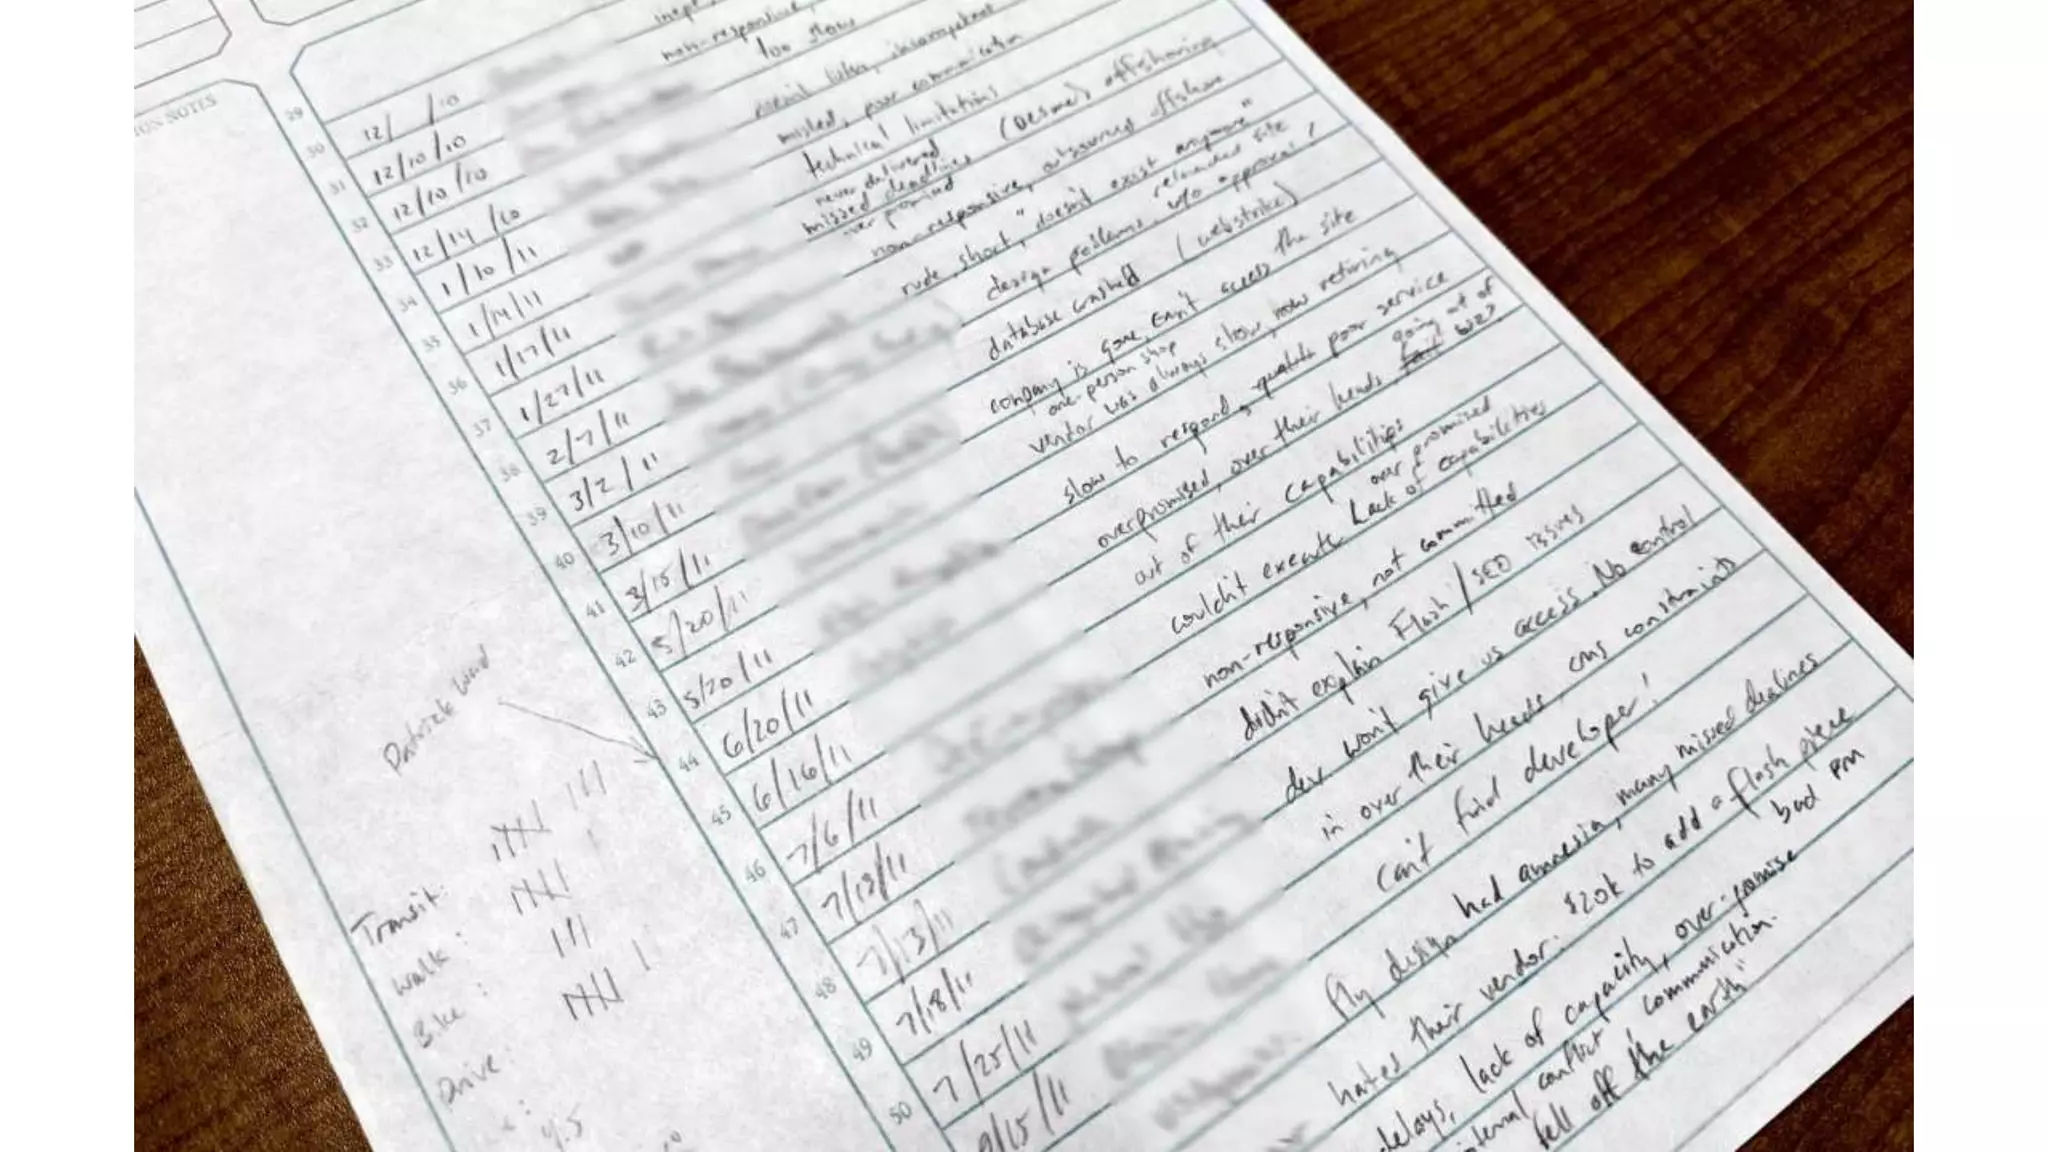 ION NOTES
non-responsive,
too slow
29 12/ /10
social, incompetent
30 12/10/10 misled, poor communication
31 12/10/10 technical limitations
32 12/14/10 never delivered missed deadlines offshoring
over promised
33 1/10/11 non-responsive, outsourced offshore
34 1/14/11 rude, short, "doesn't exist anymore"
35 1/17/11 design problems, reloaded site w/o approval!
36 1/27/11 database crashed (webstrike)
37 2/7/11 company is gone, can't access the site
one-person shop
38 3/2/11 vendor was always slow, now retiring
39 3/10/11 slow to respond, poor service
40 3/15/11 overpromised, over their heads going out of biz?
41 5/20/11 out of their capabilities
over promised
42 5/20/11 couldn't execute Lack of capabilities
43 6/20/11 non-responsive, not committed
44 6/16/11 didn't explain Flash/SEO issues
45 7/6/11 dev won't give us access. No control
46 7/13/11 in over their heads, cms constraints
47 7/13/11 Can't find developer!
48 7/18/11 Fly design had amnesia, many missed dealines
49 7/25/11 hates their vendor. $20k to add a flash piece
50 9/15/11 delays, lack of capacity, over-promise bad PM
internal conflict, communication.
fell off the earth"
Patrick Ward
Transit:
Walk:
Bike:
Drive:
4.5